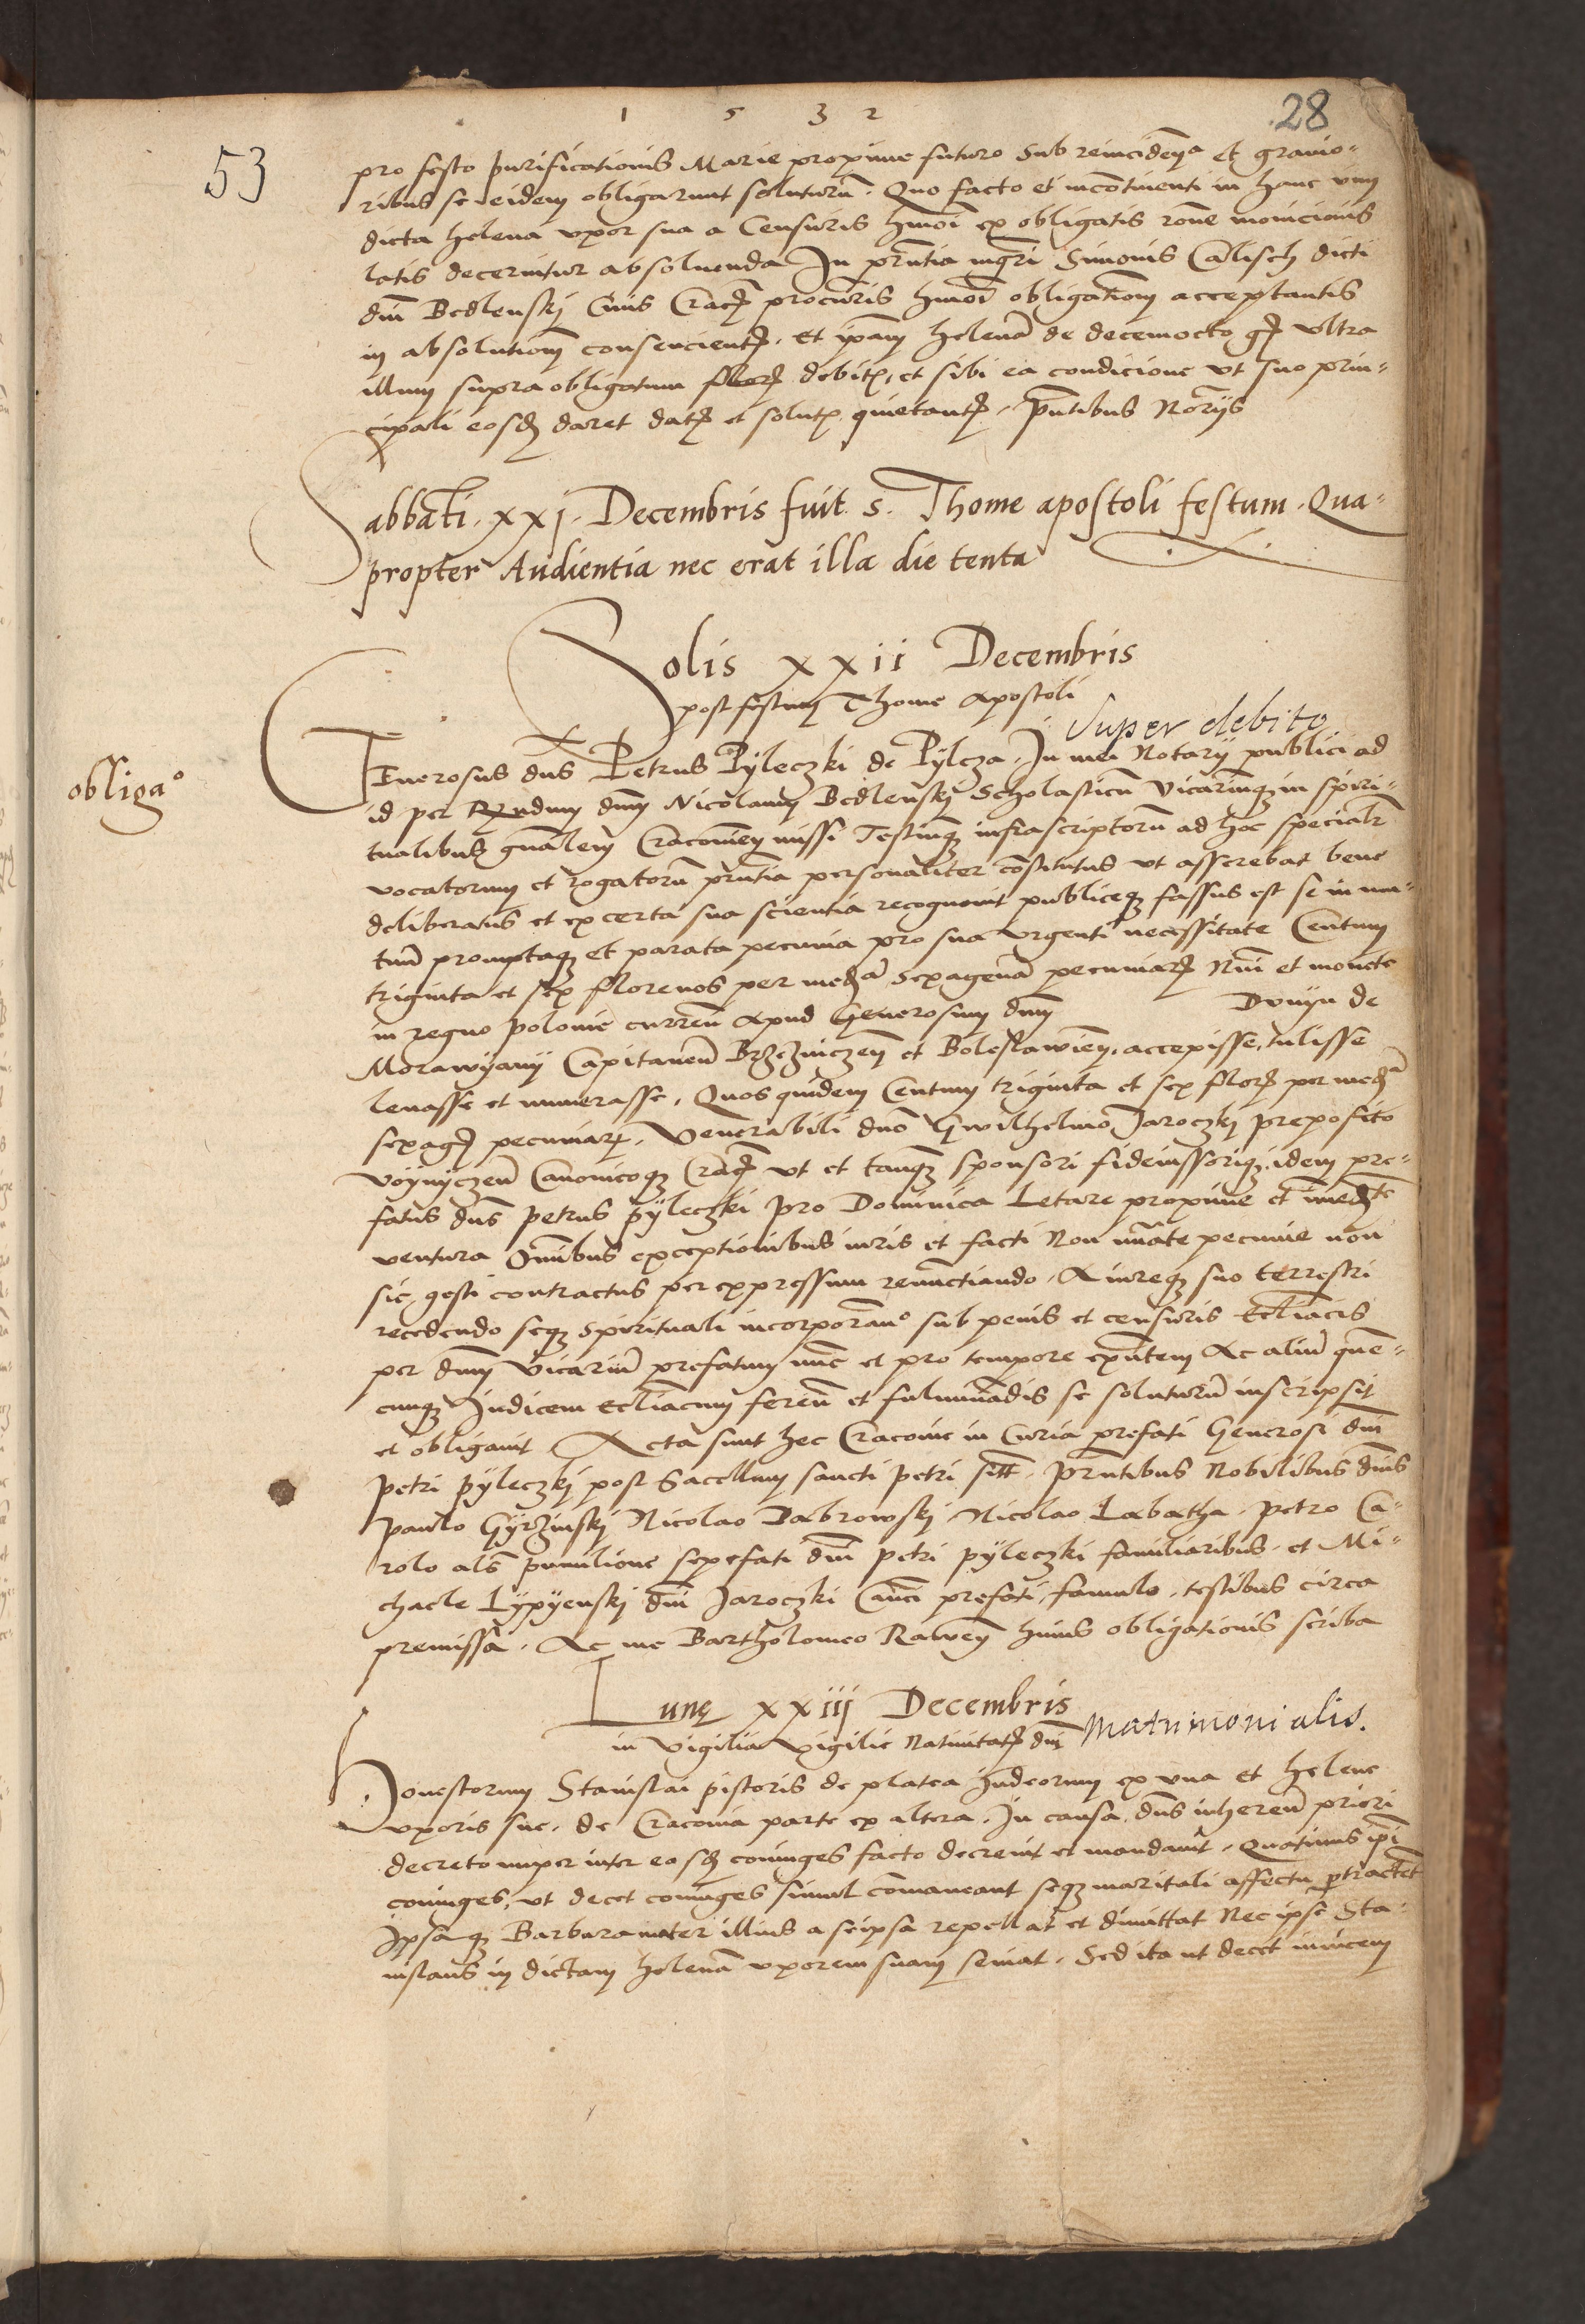 1 5 3 2
28
53
pro festo purificationis Marie proxime futuro sub reincidenᵃ et gravio-
ribus se eidem obligarunt soluturū. Quo facto et incontinenti in hanc vim
dicta helena vxor sua a Censuris hmoi ex obligatis rone monicionis
latis decernitur absoluenda In pntia mgri Simonis Calisch dicti
dni Bedlenskj Ciuis Crac procuris hmoi obligationem acceptantis
in absolutionem consencient, et ipam helenā de decemocto g vltra
illum supra obligatum flor debit, et sibi ea condicione vt suo prin-
cipali eosd daret dat et solut quietant, pntibus Norijs
Sabbati xxj Decembris fuit s. Thome apostoli festum. Qua-
propter Audientia nec erat illa die tenta
Solis xxii Decembris
post festum Thome Apostoli
Super debito
obligaᵒ
GEnerosus dns Petrus Pyleczki de Pylcza. In mei Notarij publici ad
id per Rndum dnm Nicolaum Bedlenskj Scholasticū Vicariumq in spiri-
tualibus gnalem Cracouien missi Testiumq infrascriptorū ad hoc specialr
vocatorum et rogatorū pntia personaliter cōstitutus vt asserebat bene
deliberatus et ex certa sua scientia recognouit publiceq fassus est se in mu-
tuū promptaq et parata pecunia pro sua vrgenti necessitate Centum
triginta et sex florenos per medᵃ sexagenā pecuniar Nui et monete
in regno polonie currēn apud Generosum dnm Druijn de
Morawyany Capitaneū Brzezniczen et Boleslawien, accepisse, tulisse
leuasse et numerasse, Quos quidem Centum triginta et sex flor per medᵃ
sexag pecuniar, Venerabili dno Gwilhelmo Jaroczkj preposito
voynyczen Canonicoq Crac vt et tanq sponsori fideiussoriq, idem pre-
fatus dns petrus pyleczki pro Dominica Letare proxime et īmedte
ventura Omibus exceptionibus iuris et facti Non nūate pecunie non
sic gesti contractus per expressum renūctiando. A iureq suo terrestri
recedendo seq spirituali incorporanᵒ sub penis et censuris Ecliacis
per dnm Vicariū prefatum nūc et pro tempore exntem Ac aliū quē-
cunq Iudicem Ecliacum feren et fulminādis se soluturū inscripsit
et obligauit Acta sunt hec Cracouie in Curia prefati Generosi dni
petri pyleczkj post Sacellum sancti petri sitt. Pntibus Nobilibus dnis
paulo Gyrzinskj Nicolao Dabrowskj Nicolao Labatha. Petro Ca-
rolo als pumilione sepefati dni petri pyleczki familiaribus. et Mi-
chaele Lypyenskj dni Jaroczki Canci prefati famulo. testibus circa
premissa. Ac me Bartholomeo Rawen huius obligationis scriba
Lunę xxiij Decembris
in vigilia vigilie Natiuitat dni
Matrimonialis.
Honestorum Stanislai pistoris de platea Iudeorum ex vna et helene
vxoris sue, de Cracouia parte ex altera. In causa. dns inheren priori
decreto nuper inter eosd coniuges facto decreuit et mandauit. Quatinus ipi
coniuges, vt decet coniuges simul cōmaneant seq maritali affectu ptractet
Ipsaq Barbara mater illius a seipsa repellat et dimittat Nec ipse Sta-
nislaus in dictam helenā vxorem suam seuiat. Sed ita ut decet inuicem